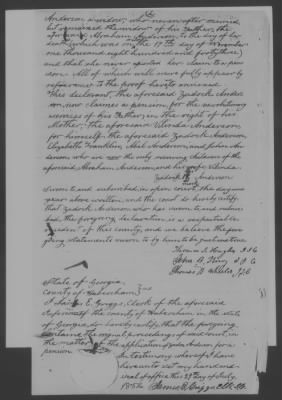 Anderson a widow, who never after married,
but remained the widow of his Father, the
aforesaid Abraham Anderson to the day of her
death, which was on the 17th day of November
one thousand eight hundred and forty three,
and that she never applied for claim to a pen-
sion. All of which will more fully appear by
reference to the proof hereto annexed
This declarant, the aforesaid Zadock Ander-
son now claims a pension, for the revolutionary
services of his Father, in the right of his
Mother, the aforesaid Anderson
for himself, the aforesaid Zadock Anderson,
Elizabeth Franklin, Anderson, and John An-
derson, who are now the only surviving children of the
aforesaid Abraham Anderson, and his wife
Zadock Anderson
mark
Sworn to and subscribed in open court, the day and
year above written, and the court do hereby certify
that Zadock Anderson who has sworn to and subscri-
bed, the foregoing declaration is a respectable
resident of this county, and we believe the fore-
going statements sworn to by him to be just and true
Thomas J. Hughes J.I.C.
John B. King J.I.C.
Thomas B. J.I.C.
State of Georgia,
County of Habersham
I James E. Griggs, Clerk of the aforesaid
court of the county of Habersham in the state
of Georgia, do hereby certify, that the foregoing
contains the original proceedings of said court, in
the matter of the application of Zadock Anderson for a
pension
In testimony whereof I have
hereunto set my hand and
seal of office this 29th day of July
185
James E. Griggs Clk